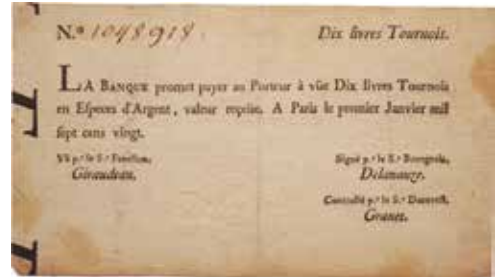 N.º 1048918. Dix livres Tournois.
LA BANQUE promet payer au Porteur à vûe Dix livres Tournois
en Especes d'Argent, valeur reçûe. A Paris le premier Janvier mil
sept cens vingt.
Vû p.r le S.r Fenellon, Signé p.r le S.r Bourgeois,
Giraudeau. Delanauze.
Controllé p.r le S.r Durevest,
Granet.